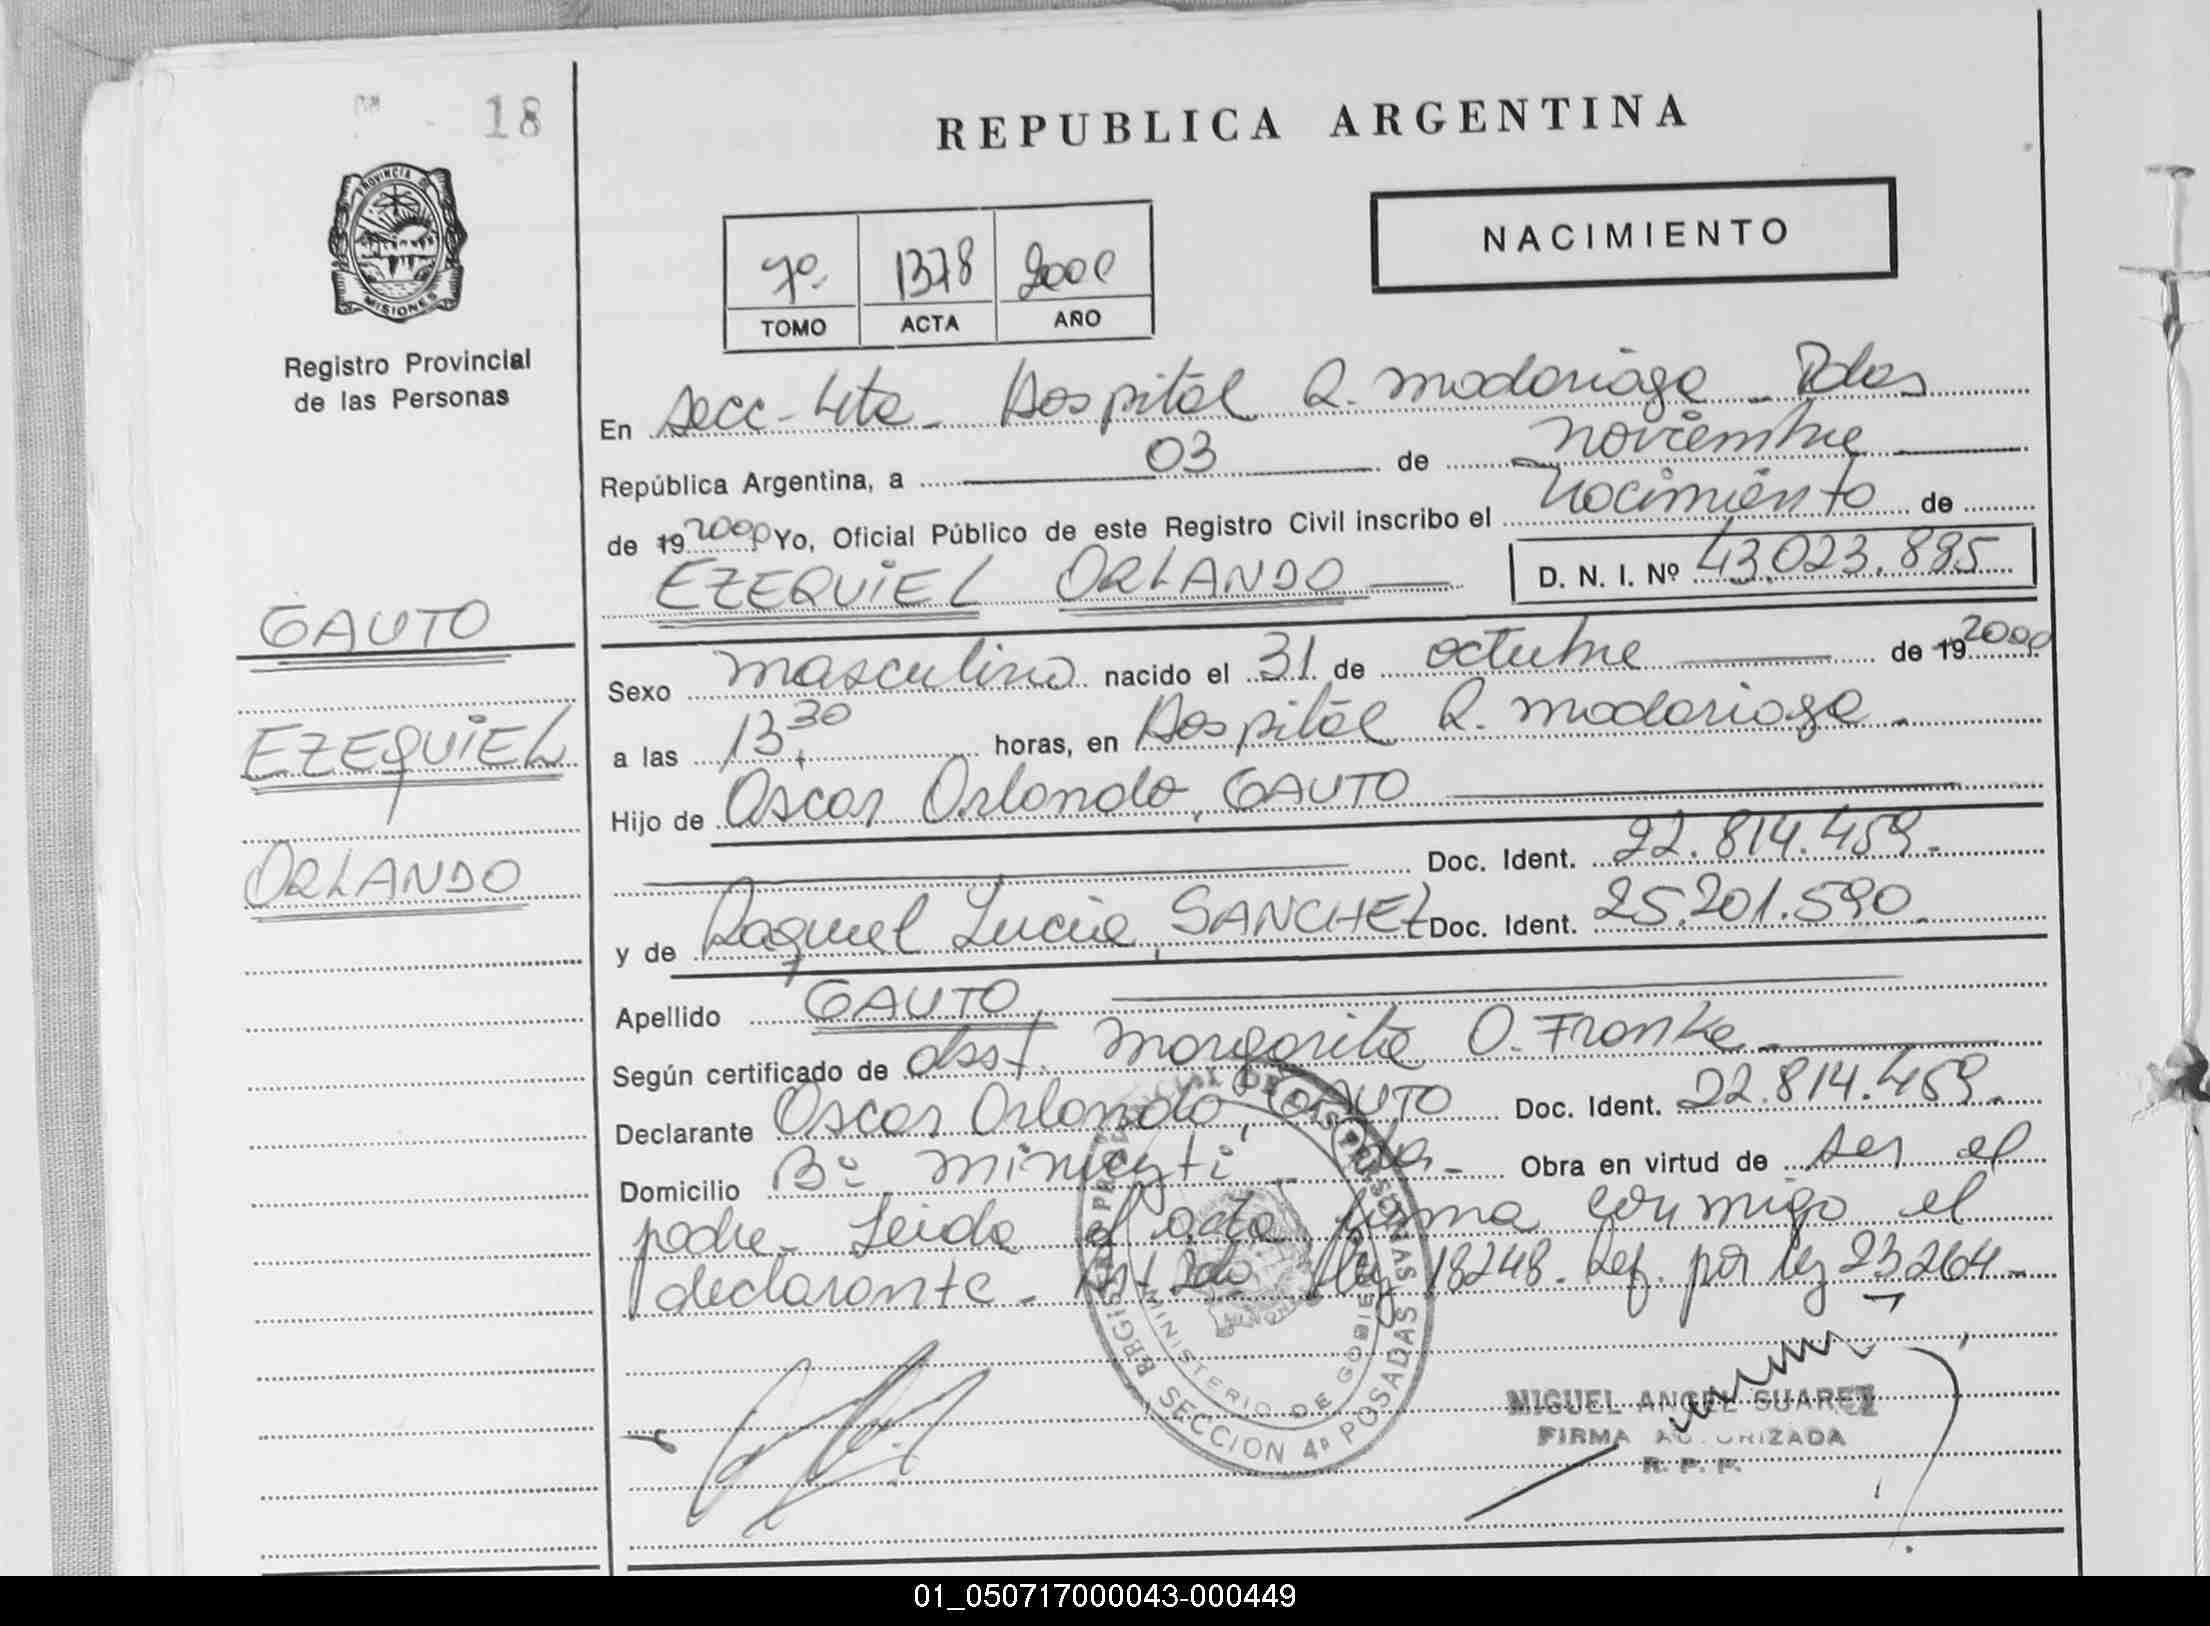 18
REPUBLICA ARGENTINA
PROVINCIA DE
MISIONES
Registro Provincial
de las Personas
7º 1378 2000
TOMO ACTA AÑO
NACIMIENTO
En Secc - 4ta - Hospital R. Madariaga - Pdas
República Argentina, a 03 de noviembre
de 19 2000 Yo, Oficial Público de este Registro Civil inscribo el nacimiento de
EZEQUIEL ORLANDO D. N. I. Nº 43.023.895
GAUTO
EZEQUIEL
ORLANDO
Sexo masculino nacido el 31 de octubre de 19 2000
a las 13,30 horas, en Hospital R. Madariaga.
Hijo de Oscar Orlando, GAUTO
Doc. Ident. 22.814.459.
y de Raquel Lucia, SANCHEZ Doc. Ident. 25.201.590.
Apellido GAUTO
Según certificado de obst. Margarita O. Franke
Declarante Oscar Orlando, GAUTO Doc. Ident. 22.814.459.
Domicilio Bº Obra en virtud de ser el
padre - Leida el acta firma conmigo el
declarante - Art 2do ley 18248. Ref. por ley 23.264 -
SECCION 4ª POSADAS
MINISTERIO DE GOBIE
MIGUEL ANGEL SUAREZ
FIRMA AUTORIZADA
R. P. P.
01_050717000043-000449